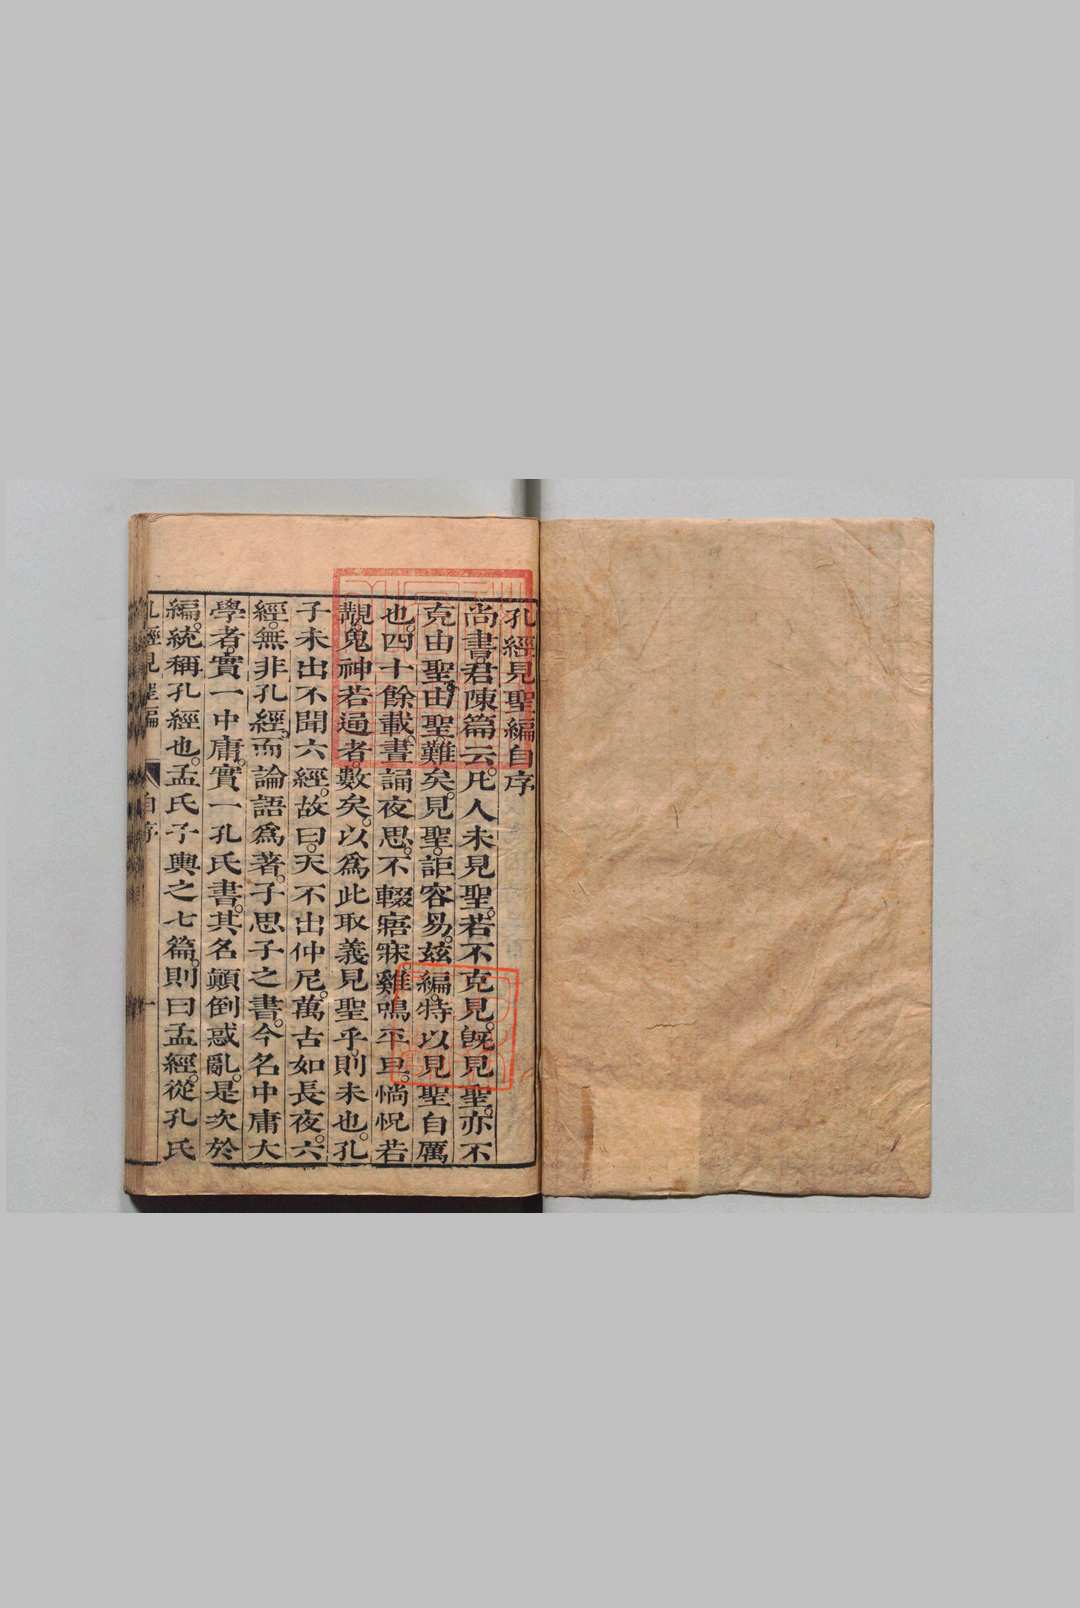 孔經見聖編自序
尚書君陳篇云。凡人未見聖。若不克見。既見聖。亦不
克由聖。由聖難矣。見聖詎容易。茲編特以見聖自厲
也。四十餘載。晝誦夜思。不輟寤寐。雞鳴平旦。惝怳若
覩。鬼神若逼者數矣。以爲此取義見聖乎。則未也。孔
子未出不聞六經。故曰。天不出仲尼。萬古如長夜。六
經。無非孔經。而論語爲著。子思子之書。今名中庸大
學者。實一中庸。實一孔氏書。其名顛倒惑亂。是次於
編。統稱孔經也。孟氏子輿之七篇。則曰孟經。從孔氏
孔經見聖編 自序 一